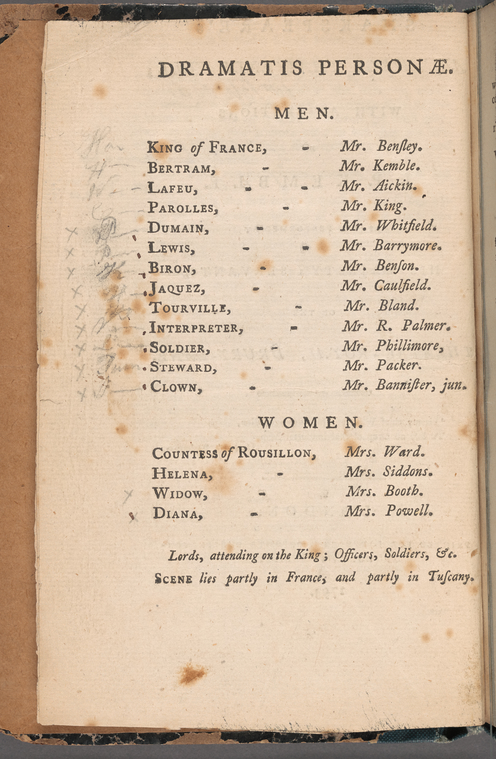 DRAMATIS PERSONÆ.
MEN.
KING of FRANCE, - Mr. Benſley.
BERTRAM, - Mr. Kemble.
LAFEU, - - Mr. Aickin.
PAROLLES, - Mr. King.
DUMAIN, - Mr. Whitfield.
LEWIS, - - Mr. Barrymore.
BIRON, - Mr. Benſon.
JAQUEZ, - Mr. Caulfield.
TOURVILLE, - Mr. Bland.
INTERPRETER, - Mr. R. Palmer.
SOLDIER, - Mr. Phillimore,
STEWARD, - Mr. Packer.
CLOWN, - Mr. Banniſter, jun.
WOMEN.
COUNTESS of ROUSILLON, Mrs. Ward.
HELENA, - Mrs. Siddons.
WIDOW, - Mrs. Booth.
DIANA, - Mrs. Powell.
Lords, attending on the King; Officers, Soldiers, &c.
SCENE lies partly in France, and partly in Tuſcany.